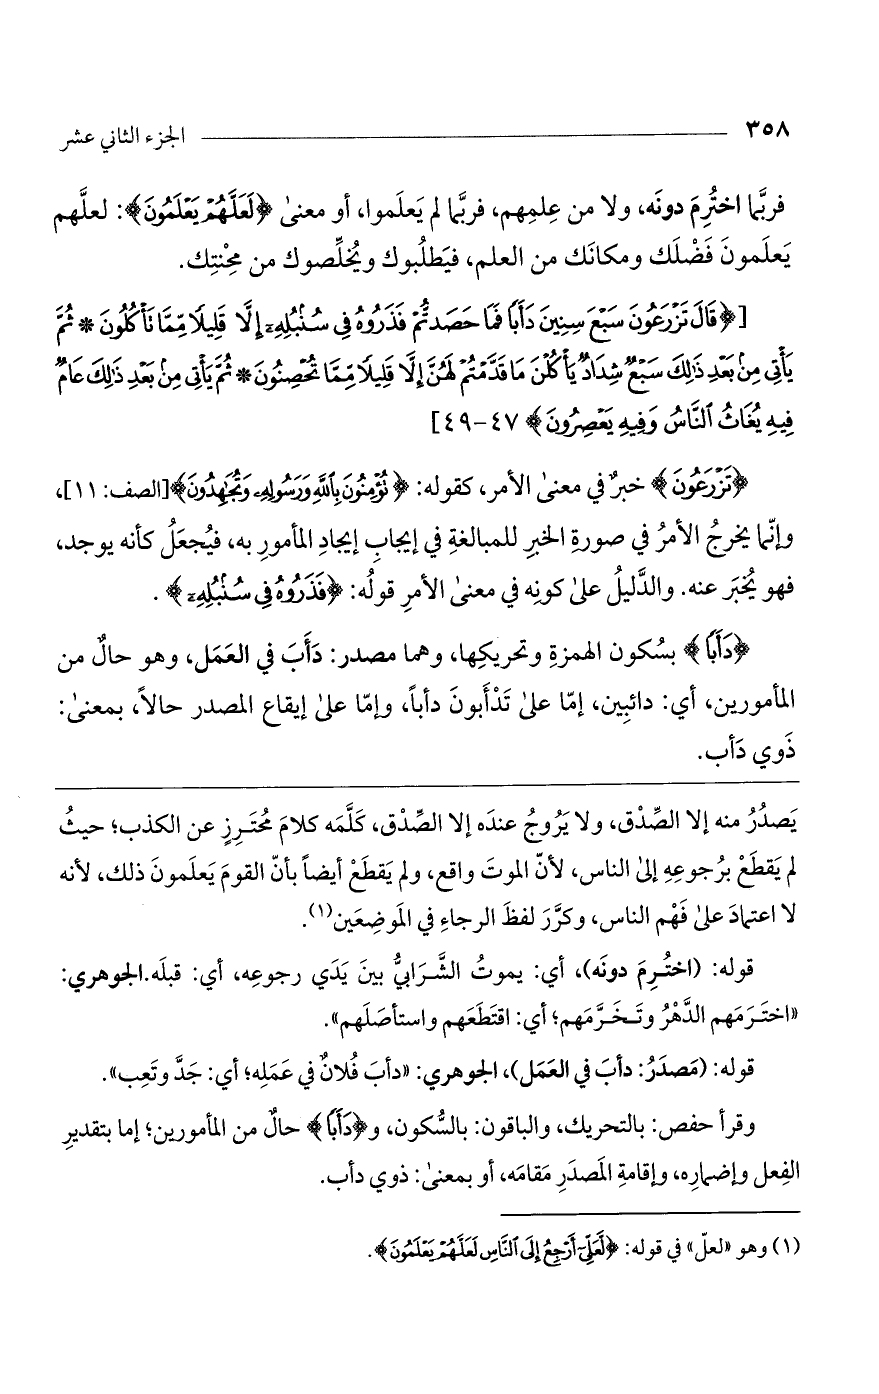 ٣٥٨ الجزء الثاني عشر
فربَّما اختُرِمَ دونَه، ولا من عِلمِهم، فربَّما لم يَعلَموا، أو معنىٰ ﴿لَعَلَّهُمْ يَعْلَمُونَ﴾: لعلَّهم
يَعلَمونَ فَضْلَك ومكانَك من العلم، فيَطلُبوك ويُخلِّصوك من مِحْنتِك.
[﴿قَالَ تَزْرَعُونَ سَبْعَ سِنِينَ دَأَبًا فَمَا حَصَدتُّمْ فَذَرُوهُ فِي سُنۢبُلِهِۦٓ إِلَّا قَلِيلًا مِّمَّا تَأْكُلُونَ * ثُمَّ
يَأْتِي مِنۢ بَعْدِ ذَٰلِكَ سَبْعٌ شِدَادٌ يَأْكُلْنَ مَا قَدَّمْتُمْ لَهُنَّ إِلَّا قَلِيلًا مِّمَّا تُحْصِنُونَ * ثُمَّ يَأْتِي مِنۢ بَعْدِ ذَٰلِكَ عَامٌ
فِيهِ يُغَاثُ ٱلنَّاسُ وَفِيهِ يَعْصِرُونَ﴾ ٤٧-٤٩]
﴿تَزْرَعُونَ﴾ خبرٌ في معنىٰ الأمر، كقوله: ﴿تُؤْمِنُونَ بِٱللَّهِ وَرَسُولِهِۦ وَتُجَٰهِدُونَ﴾[الصف: ١١]،
وإنَّما يخرجُ الأمرُ في صورةِ الخبرِ للمبالغةِ في إيجابِ إيجادِ المأمورِ به، فيُجعَلُ كأنه يوجد،
فهو يُخبَر عنه. والدَّليلُ علىٰ كونِه في معنىٰ الأمرِ قولُه: ﴿فَذَرُوهُ فِي سُنۢبُلِهِۦٓ﴾.
﴿دَأَبًا﴾ بسُكون الهمزةِ وتحريكِها، وهما مصدر: دَأَبَ في العَمَل، وهو حالٌ من
المأمورين، أي: دائبِين، إمّا علىٰ تَدْأَبونَ دأباً، وإمّا علىٰ إيقاع المصدر حالاً، بمعنىٰ:
ذَوي دَأب.
يَصدُرُ منه إلا الصِّدْق، ولا يَرُوجُ عندَه إلا الصِّدْق، كَلَّمَه كلامَ مُحتَرِزٍ عن الكذب؛ حيثُ
لم يَقطَعْ برُجوعِهِ إلىٰ الناس، لأنّ الموتَ واقع، ولم يَقطَعْ أيضاً بأنّ القومَ يَعلَمونَ ذلك، لأنه
لا اعتمادَ علىٰ فَهْم الناس، وكرَّرَ لفظَ الرجاءِ في المَوضِعَين(١).
قوله: (اختُرِمَ دونَه)، أي: يموتُ الشَّرَابيُّ بينَ يَدَي رجوعِه، أي: قبلَه.الجوهري:
«اختَرَمَهم الدَّهْرُ وتَخَرَّمَهم؛ أي: اقتَطَعَهم واستأصَلَهم».
قوله: (مَصدَرُ: دأبَ في العَمَل)، الجوهري: «دأبَ فُلانٌ في عَمَلِه؛ أي: جَدَّ وتَعِب».
وقرأ حفص: بالتحريك، والباقون: بالسُّكون، و﴿دَأَبًا﴾ حالٌ من المأمورين؛ إما بتقديرِ
الفِعل وإضمارِه، وإقامةِ المَصدَرِ مَقامَه، أو بمعنىٰ: ذوي دأب.
(١) وهو «لعلّ» في قوله: ﴿لَّعَلِّيٓ أَرْجِعُ إِلَى ٱلنَّاسِ لَعَلَّهُمْ يَعْلَمُونَ﴾.